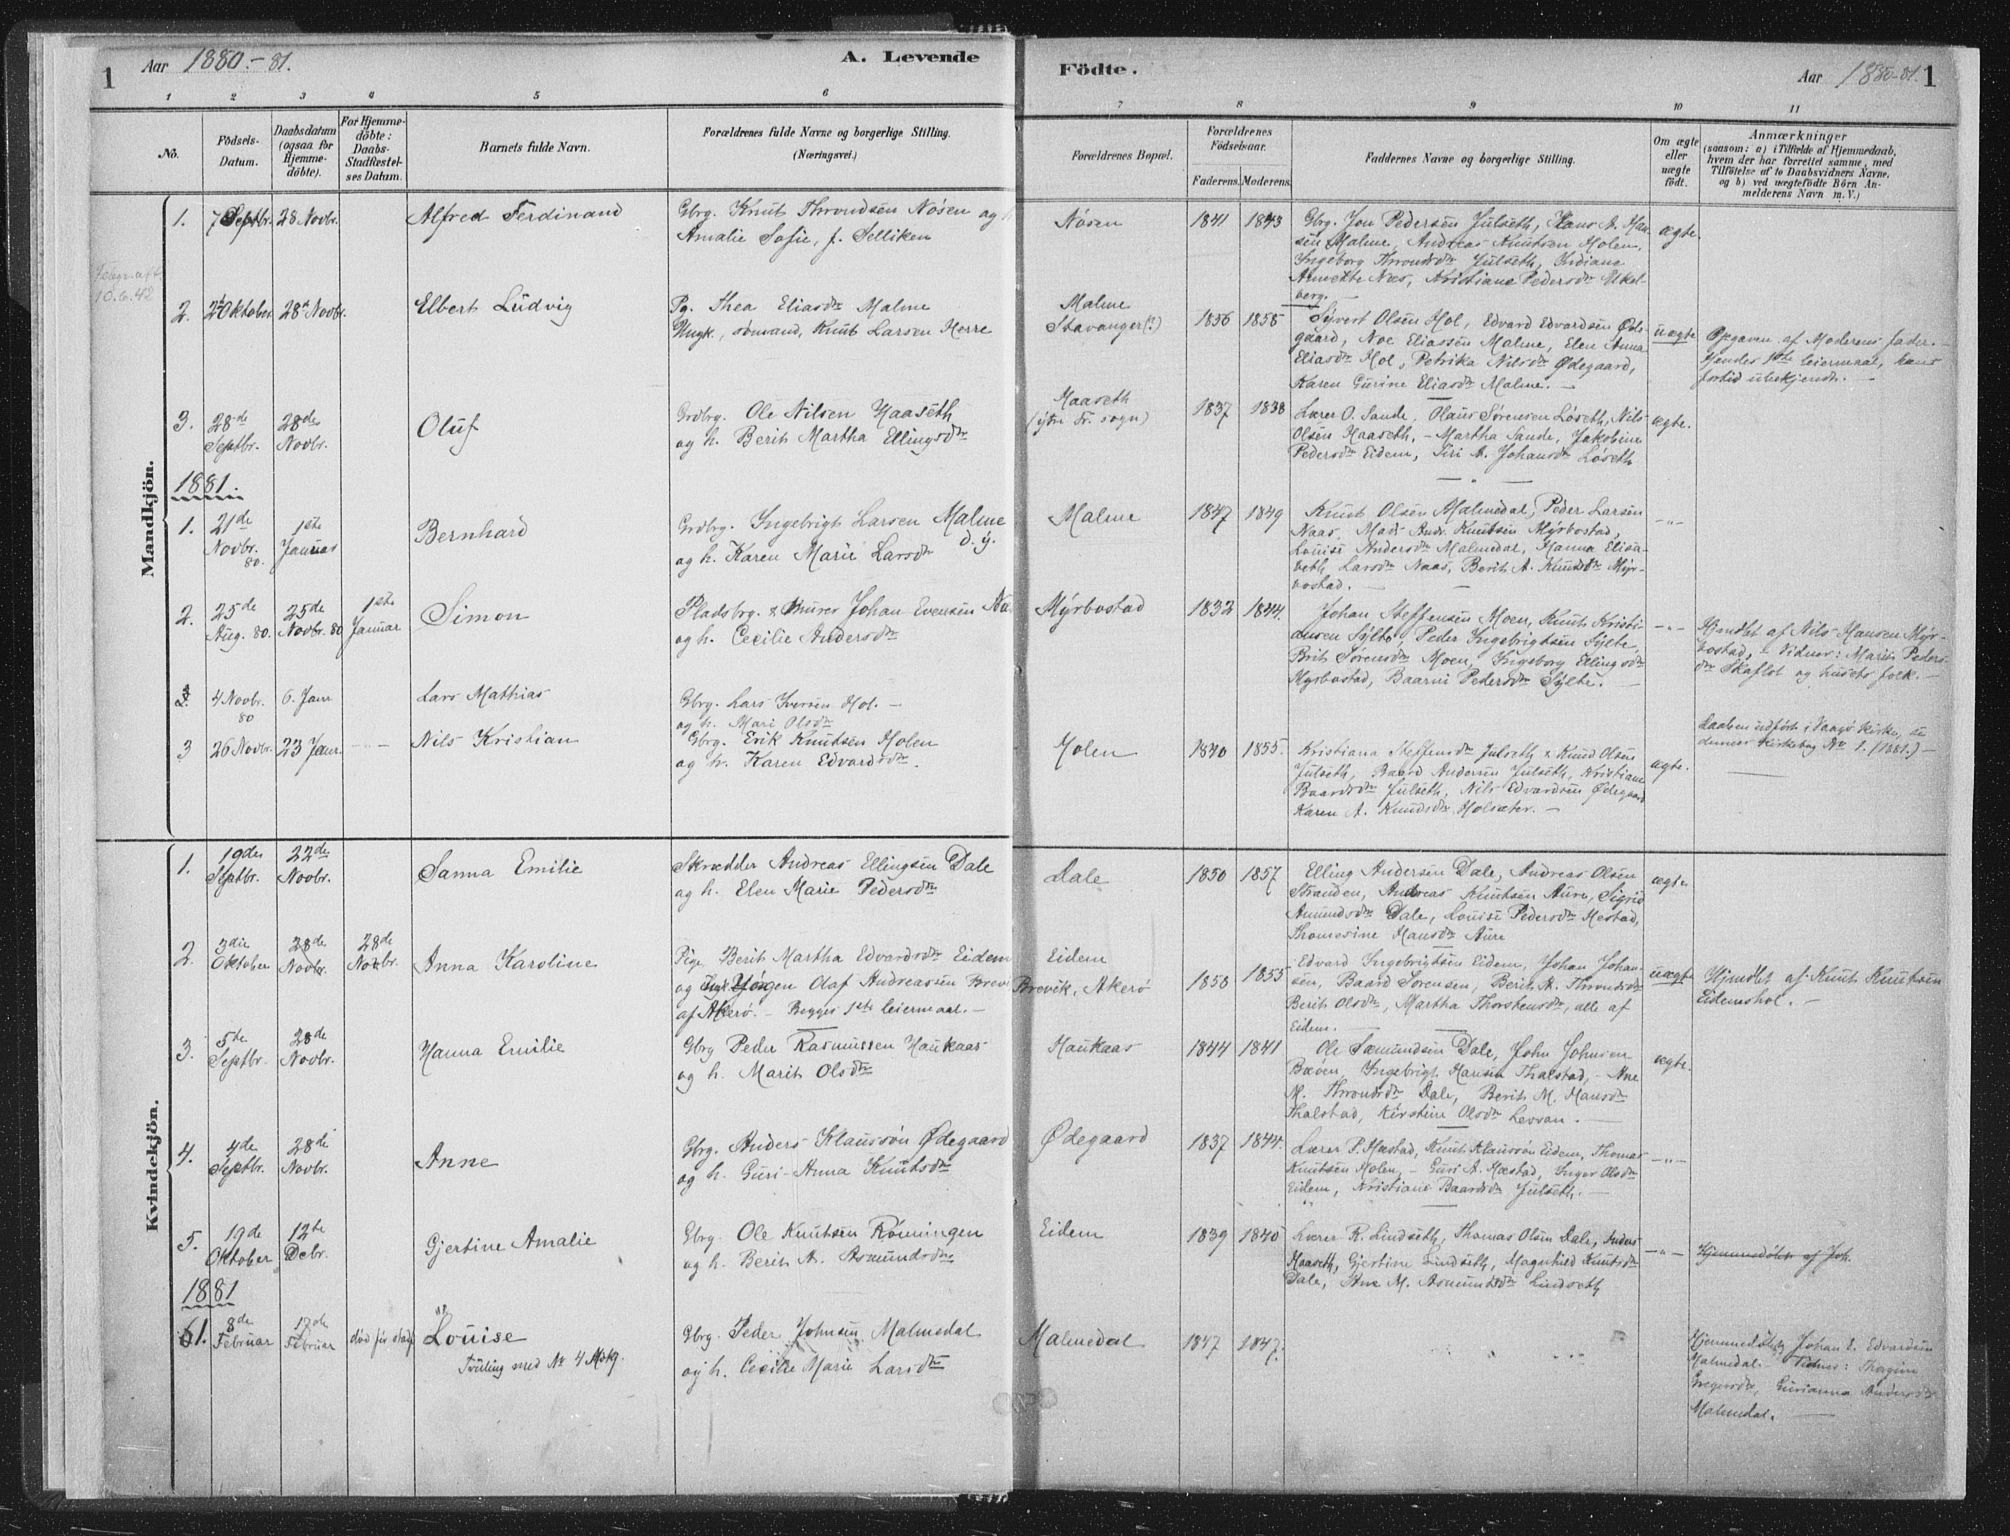 1 Aar 1880.-81. A. Levende
Födte. Aar 1880-81. 1
1 2 3 4 5 6
7 8 9 10 11
No.
Födsels-Datum.
Daabsdatum (ogsaa for Hjemme-döbte).
For Hjemme-döbte: Daabs-Stadfæstelses Datum.
Barnets fulde Navn.
Forældrenes fulde Navne og borgerlige Stilling.
(Næringsvei.)
Forældrenes Bopæl.
Forældrenes Födselsaar.
Faderens. Moderens.
Faddernes Navne og borgerlige Stilling.
Om ægte eller uægte födt.
Anmærkninger
(saasom: a) i Tilfælde af Hjemmedaab,
hvem der har forrettet samme, med
Tilföielse af to Daabsvidners Navne,
og b) ved uægtefödte Börn An-
melderens Navn m. V.)
Mandkjön.
1. 7 Septbr. 28 Novbr. Alfred Ferdinand
Gbrg. Knut Throndsen Nøsen og
Amalie Sofie, f. Selliken
Nøsen 1841 1843
Gbrg. Jon Pedersen Julseth, Hans A. Han-
sen Malme, Andreas Knutsen Holen,
Ingeborg Throndsdr Julseth, Indiana
Annette Næs, Kristiane Pedersdr Ukel-
berg.
ægte.
10.6.42
2. Oktober 28 Novbr. Elbert Ludvig
Pg. Thea Eliasdr Malme
Ungk., sömand, Knut Larsen Herre
Malme
Stavanger(?) 1856 1858
Syvert Olsen Hol, Edvard Edvardsen Øde-
gaard, Noe Eliassen Malme, Elen Anna
Eliasdr Hol, Petrika Nilsdr Ødegaard,
Karen Gurine Eliasdr Malme.
uægte
Opgaven af Moderens fader.
Hendes 1ste leiermaal, hans
fortid ubekjendt.
3. 28de Septbr. 28de Novbr. Oluf
Grdbrg. Ole Nilsen Haaseth
og h. Berit Martha Ellingsdr
Haaseth
(ytre Fr. sogn) 1837 1838
Lærer O. Sande, Olaus Sørensen Løseth, Nils
Olsen Haaseth, - Martha Sande, Jakobine
Pedersdr Eidem, Siri A. Johansdr Løseth
ægte.
1881.
1. 21de Novbr. 80. 1ste Januar Bernhard
Grdbrg. Ingebrigt Larsen Malme d. y.
og h. Karen Marie Larsdr
Malme 1847 1849
Knut Olsen Malmedal, Peder Larsen
Naas, Mads Andr. Knutsen Myrbostad,
Louise Andersdr Malmedal, Hanna Elisa-
beth Larsdr Naas, Berit A. Knutsdr Myr-
bostad.
-"-
2. 25de Aug. 80. 25de Novbr. 80 1ste Januar Simon
Pladsbrg. & Murer Johan Evensen
og h. Cecilie Andersdr
Myrbostad 1832 1844.
Johan Steffensen Moen, Knut Kristi-
ansen Sylte, Peder Ingebrigtsen Sylte,
Brit Sørensdr Moen, Ingeborg Ellingsdr
Myrbostad, Baarni Pedersdr Sylte.
-"-
Hjmdbt af Nils Hansen Myr-
bostad, - Vidner: Marit Peders-
dr Skaflot og husets folk.
3 4 Novbr. 80 6. Janr Lars Mathias
Gbrg. Lars Iversen Hol.
og h. Mari Olsdr
Daaben udført i Vaagö Kirke, se
dennes Kirkebog No 1. (1881.)
3 26 Novbr. 23 Janr Nils Kristian
Gbrg. Erik Knutsen Holen
og h. Karen Edvardsdr.
Holen 1840 1855.
Kristiana Steffensdr Julseth & Knud Olsen
Julseth, Baard Andersen Julseth, Kristiane
Baardsdr Julseth, Nils Edvardsen Ødegaard
Karen A. Knudsdr Holsæter.
ægte.
Kvindekjön.
1. 19de Septbr. 22de Novbr. Sanna Emilie
Skrædder Andreas Ellingsen Dale
og h. Elen Marie Pedersdr
Dale 1850 1857
Elling Andersen Dale, Andreas Olsen
Stranden, Andreas Knutsen Aure, Sigrid
Amundsdr Dale, Louise Pedersdr Hestad,
Thomesine Hansdr Aure
ægte.
2. 3die Oktober 28de Novbr. 28de Novbr. Anna Karoline
Pige Berit Martha Edvardsdr Eidem
og Jørgen Olaf Andreassen
af Akerø. - Begges 1ste leiermaal.
Eidem
Brevik, Akerø 1858 1855
Edvard Ingebrigtsen Eidem, Johan Johan-
sen, Baard Sørensen, Berit A. Throndsdr
Berit Olsdr, Martha Thorstensdr, alle af
Eidem.
uægte
Hjmdbt af Knut Knutsen
Eidemshol.
3. 5te Septbr. 28de Novbr. Hanna Emilie
Gbrg Peder Rasmussen Haukaas
og h. Marit Olsdr
Haukaas 1844 1841
Ole Sæmundsen Dale, John Johnsen
Bøen, Ingebrigt Hansen Thalstad, - Ane
M. Throndsdr Dale, Berit M. Hansdr
Thalstad, Kirstine Olsdr Levsan.
ægte.
4. 4de Septbr. 28de Novbr. Anne
Gbrg. Anders Klaussøn Ødegaard
og h. Guri-Anna Knutsdr
Ødegaard 1837 1844.
Lærer P. Hæstad, Knut Klaussøn Eidem, Thomas
Knutsen Holen, - Guri A. Hæstad, Inger Olsdr
Eidem, Kristiane Baardsdr Julseth.
-"-
5. 19de Oktober 12te Decbr. Gjertine Amalie
Gbrg. Ole Knutsen Rönningen
og h. Berit A. Asmundsdr
Eidem 1839 1840
Lærer R. Lindseth, Thomas Olsen Dale, Anders
Haaseth, Gjertine Lindseth, Magnhild Knutsdr
Dale, Ane M. Asmundsdr Lindseth
-"-
Hjemmedøbt af Joh.
1881
1. 8de Februar 12de Februar død før stadf Louise
Tvilling med No 4 Mdkj.
Gbrg. Peder Johnsen Malmedal
og h. Cecilie Marie Larsdr
Malmedal 1847 1847.
Hjemmedøbt Johan E. Edvardsen
Malmedal. Vidner: Thorine
Gregersdr, Gurianna Andersdr
Malmedal.